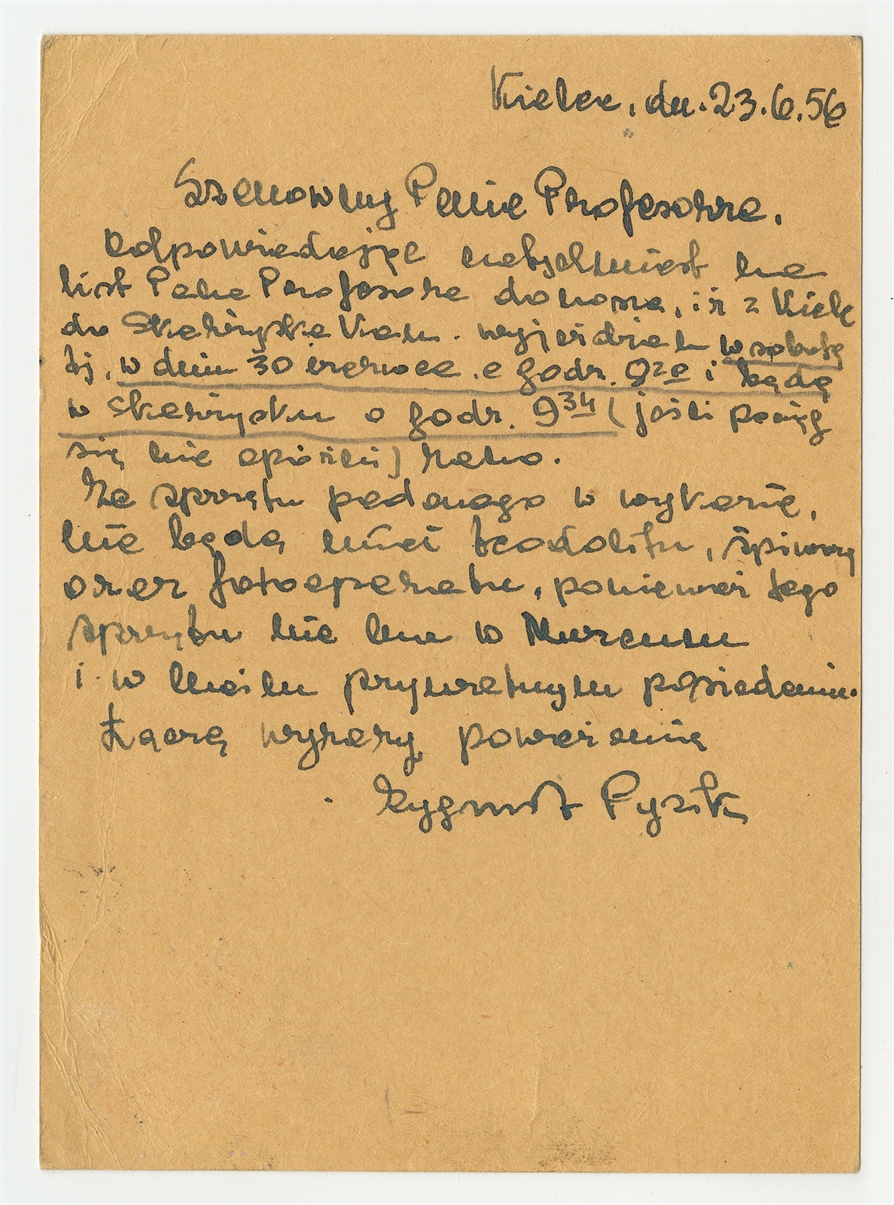 Kielce, dn. 23.6.56
Szanowny Panie Profesorze.
Odpowiadając natychmiast na
list Pana Profesora donoszę, iż z Kielc
do Skarżyska Kam. wyjeżdżam w sobotę
tj. w dniu 30 czerwca o godz. 9²⁰ i będę
w Skarżysku o godz. 9³⁴ (jeśli pociąg
się nie opóźni) rano.
Ze sprzętu podanego w wykazie,
nie będę mieć teodolitu, śpiwory
oraz fotoaparatu, ponieważ tego
sprzętu nie ma w Muzeum
i w moim prywatnym posiadaniu.
Łączę wyrazy poważania
Zygmunt Pyzik